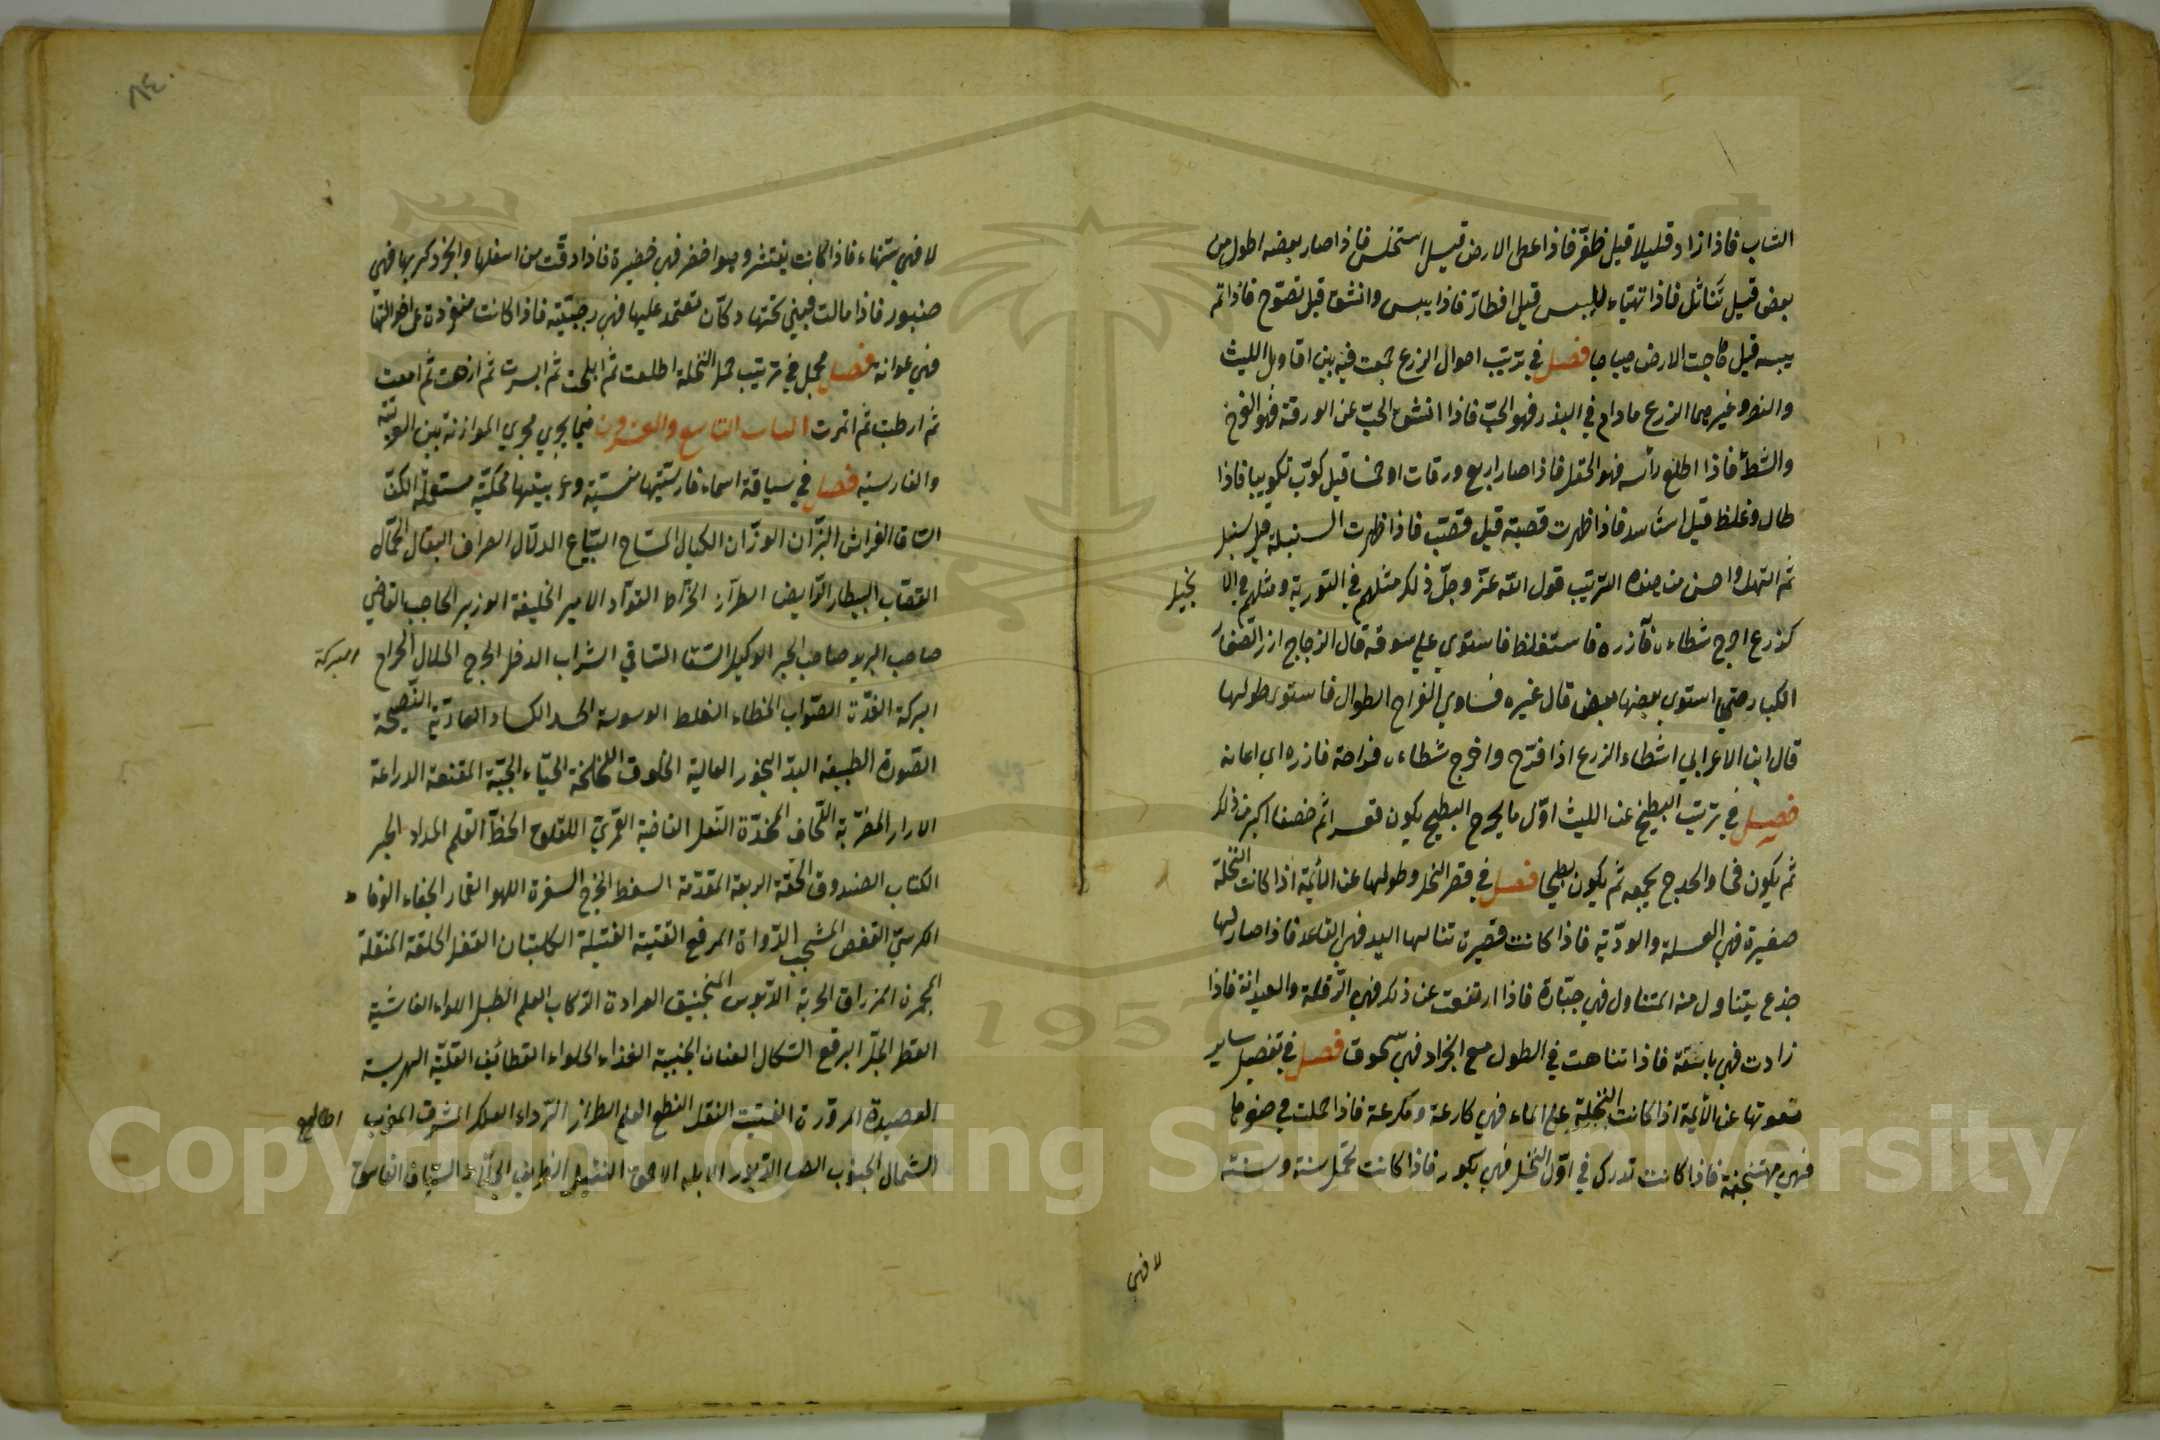 الشاب فاذا زاد قليلا قيل ظفّر فاذا غطى الارض قيل استحلس فاذا صار بعضه اطول من
بعض قيل تناثل فاذا تهياء لليبس قيل اقطارّ فاذا يبس وانشق قيل تصوّح فاذا تم
يبسه قيل هاجت الارض هياجا فصل في ترتيب احوال الزرع جمعت فيه بين اقاويل الليث
والنضر وغيرهما الزرع ما دام في البذر فهو الحبّ فاذا انشق الحبّ عن الورقة فهو الفرخ
والشطء فاذا اطلع رأسه فهو الحقل فاذا صار اربع ورقات او خمسا قيل كوّب تكويبا فاذا
طال وغلظ قيل استأسد فاذا ظهرت قصبته قيل قصّب فاذا ظهرت السنبلة قيل سنبل
ثم اكتهل واحسن من هذه الترتيب قول الله عزّ وجلّ ذلك مثلهم في التورية ومثلهم في الا
نجيل
كزرع اخرج شطاءه فآزره فاستغلظ فاستوى على سوقه قال الزجاج ازر الصغار
الكبار حتى استوى بعضها ببعض قال غيره فساوى الفراخ الطوال فاستوى طولها
قال ابن الاعرابي اشطاء الزرع اذا فرّخ واخرج شطاءه فراخه فازره اي اعانه
فصل في ترتيب البطيخ عن الليث اوّل ما يخرج البطيخ يكون قعسرا ثم خضفا اكبر من ذلك
ثم يكون قحا والحدج يجمعه ثم يكون بطيخا فصل في قصر النخل وطولها عن الأئمة اذا كانت النخلة
صغيرة فهي الفسلة والوديّة فاذا كانت قصيرة تنالها اليد فهي القاعد فاذا صار لها
جذع يتناول منه المتناول فهي جبّارة فاذا ارتفعت عن ذلك فهي الرّقلة والعيدانة فاذا
زادت فهي باسقة فاذا تناهت في الطول مع انجراد فهي سحوق فصل في تفصيل ساير
نعوتها عن الأئمة اذا كانت النخلة على الماء فهي كارعة ومكرعة فاذا حملت في صغرها
فهي مهتجنة فاذا كانت تدرك في اوّل النخل فهي بكور فاذا كانت تحمل سنة وسنة
لا فهي
٨٤٠
لا فهي سنهاء فاذا كانت بسرها ينتثر وهو اخضر فهي خضيرة فاذا دقّت من اسفلها وانجرد كربها فهي
صنبور فاذا مالت فبني تحتها دكّان تعتمد عليها فهي رجبيّة فاذا كانت منفردة عن اخواتها
فهي عوانة فصل مجمل في ترتيب حمل النخلة اطلعت ثم ابلحت ثم ابسرت ثم ازهت ثم امعت
ثم ارطبت ثم اتمرت الباب التاسع والعشرون فيما يجري مجري الموازنة بين العربيّة
والفارسية فصل في سياقة اسماء فارسيّتها منسيّة وعربيّتها محكيّة مستعملة الكفّ
الساق الفراش البزّاز الوزّان الكيال المسّاح البيّاع الدلّال الصراف البقال الجمّال
القصّاب البيطار الرّايض الطرّاز الخرّاط القوّاد الامير الخليفة الوزير الحاجب القاضي
صاحب البريد صاحب الخبر الوكيل السقّا الساقي الشراب الدخل الخرج الحلال الحرام
البركة
البركة القدرة الصّواب الخطاء الغلط الوسوسة الحسد الكساد العاديّة النصيحة
الصّورة الطبيعة الندّ البخور الغالية الخلوق اللخلخة الحنّاء الجبّة المقنعة الدراعة
الازار المضرّبة اللّحاف المخدّة النعل الفاختة القمريّ اللقلق الخطّ القلم المداد الحبر
الكتاب الصندوق الحقّة الربعة المقدّمة السفط الخرج السفرة اللهو القمار الجفاء الوفاء
الكرسيّ القفص المشجب الدّواة المرفع القنينة الفتيلة الكلبتان القفل الحلقة المنقلة
المجمرة المزراق الحربة الدّبوس المنجنيق العرادة الركاب العلم الطبل اللواء الغاشية
القطر الجلّ البرقع الشكال العنان الجنيبة الغذاء الحلواء القطائف القليّة الهريسة
العصيدة المزوّرة الفتيت النقل النطع العلم الطراز الرّداء الفلك المشرق المغرب
الطالع
الشمال الجنوب الصبا الدّبور الابله الاحمق النبيل الظريف الجلّاد السيّاف العاشق